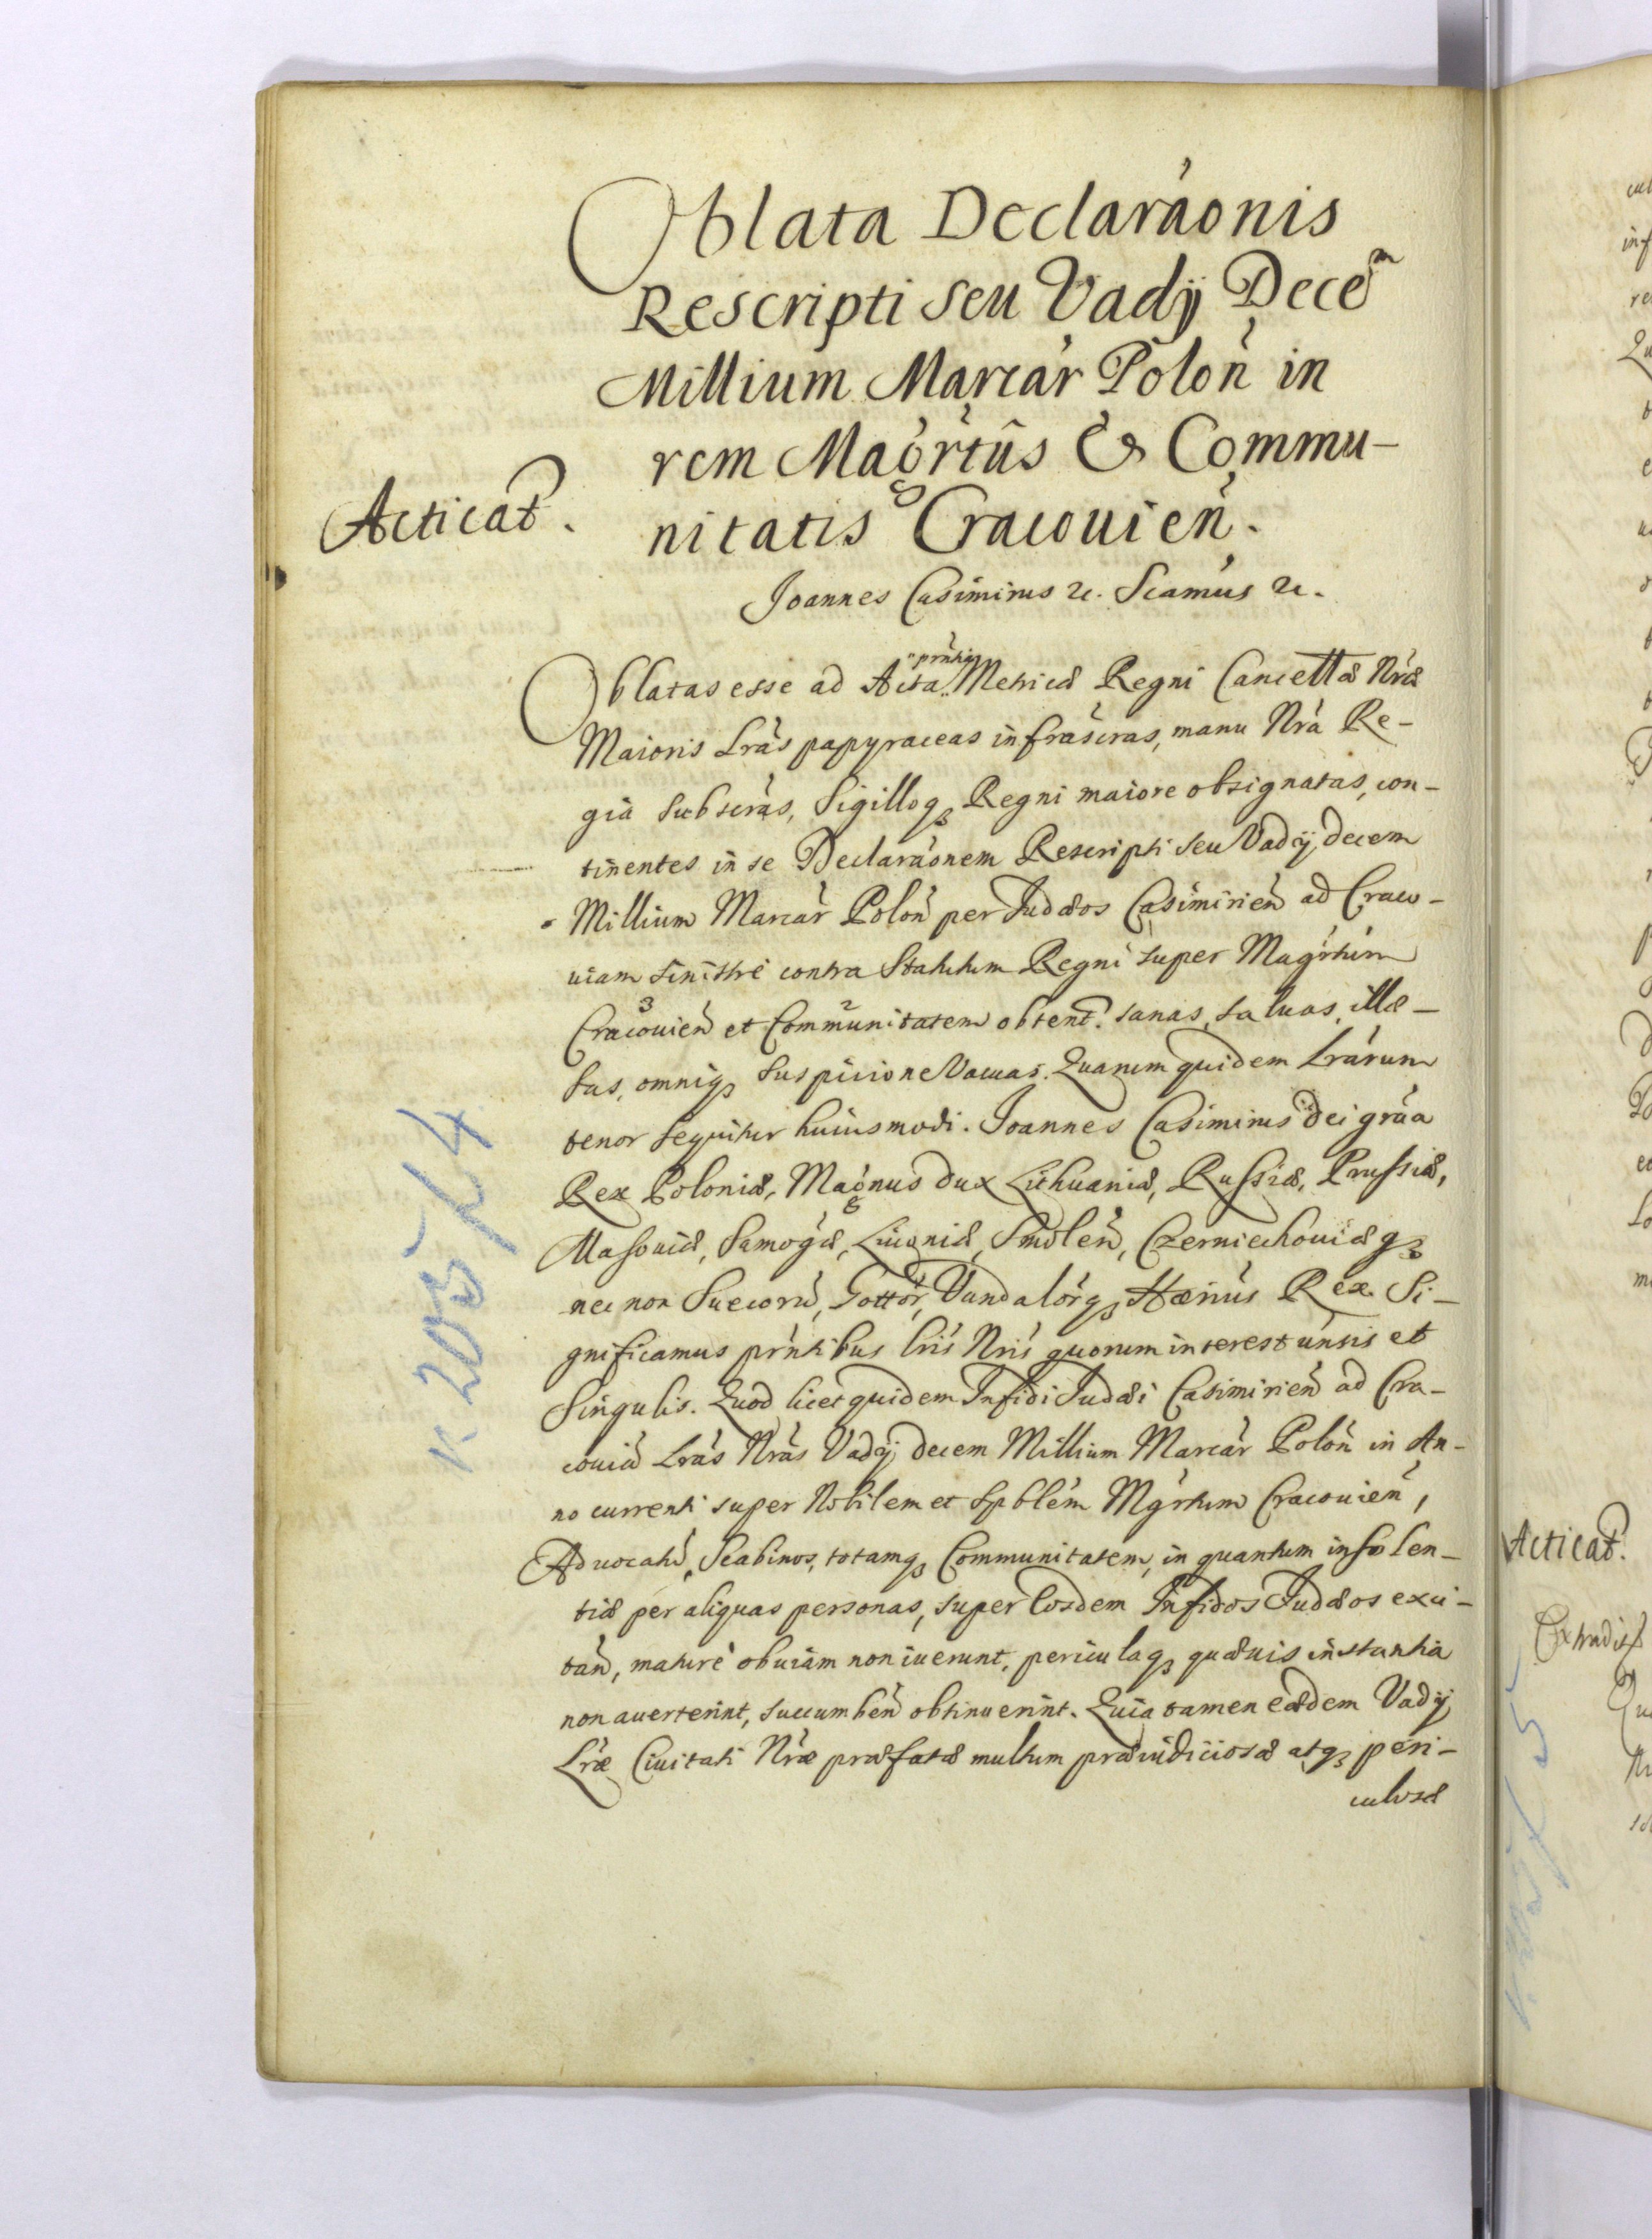 Oblata Declaraonis
Rescripti seu Vadij Decem
Millium Marcar Polon in
rem Magrtus & Commu-
nitatis Cracouien.
Acticat.
Joannes Casimirus &c. Scamus &c.
Oblatas esse ad Acta prntia Metricæ Regni Cancellæ Nræ
Maioris Lras papyraceas infrascras, manu Nra Re-
gia subscras, Sigilloq3 Regni maiore obsignatas, con-
tinentes in se Declaraonem Rescripti seu Vadij decem
Millium Marcar Polon per Judæos Casimirien ad Craco-
uiam sinistrè contra Statutum Regni super Magrtum
Cracouien et Communitatem obtent. sanas, saluas, illæ-
sas, omniq3 suspicione Vacuas. Quarum quidem Lrarum
tenor sequitur huiusmodi. Joannes Casimirus Dei graa
Rex Poloniæ, Magnus dux Lithuaniæ, Russiæ, Prussiæ,
Masouiæ, Samogæ, Liuoniæ, Smolen, Czerniechouiæq3
nec non Suecoru, Gottor, Vandalorq3 Hærius Rex. Si-
gnificamus prntibus lris Nris quorum interest unsis et
Singulis. Quod licet quidem Infidi Judæi Casimirien ad Cra-
couiã Lras Nras Vadij decem Millium Marcar Polon in An-
no currenti super Nobilem et Spblem Mgrtum Cracouien,
Aduocatũ, Scabinos, totamq3 Communitatem, in quantum insolen-
tiæ per aliquas personas, super Eosdem Infidos Judæos exci-
tan, maturè obuiam non iuerunt, periculaq3 quæuis instantia
non auerterint, succumben obtinuerint. Quia tamen eædem Vadij
Lræ Ciuitati Nræ præfatæ multum præiudiciosæ atq3 peri-
culosæ
K 205 f 4
Acticat.
Extradit